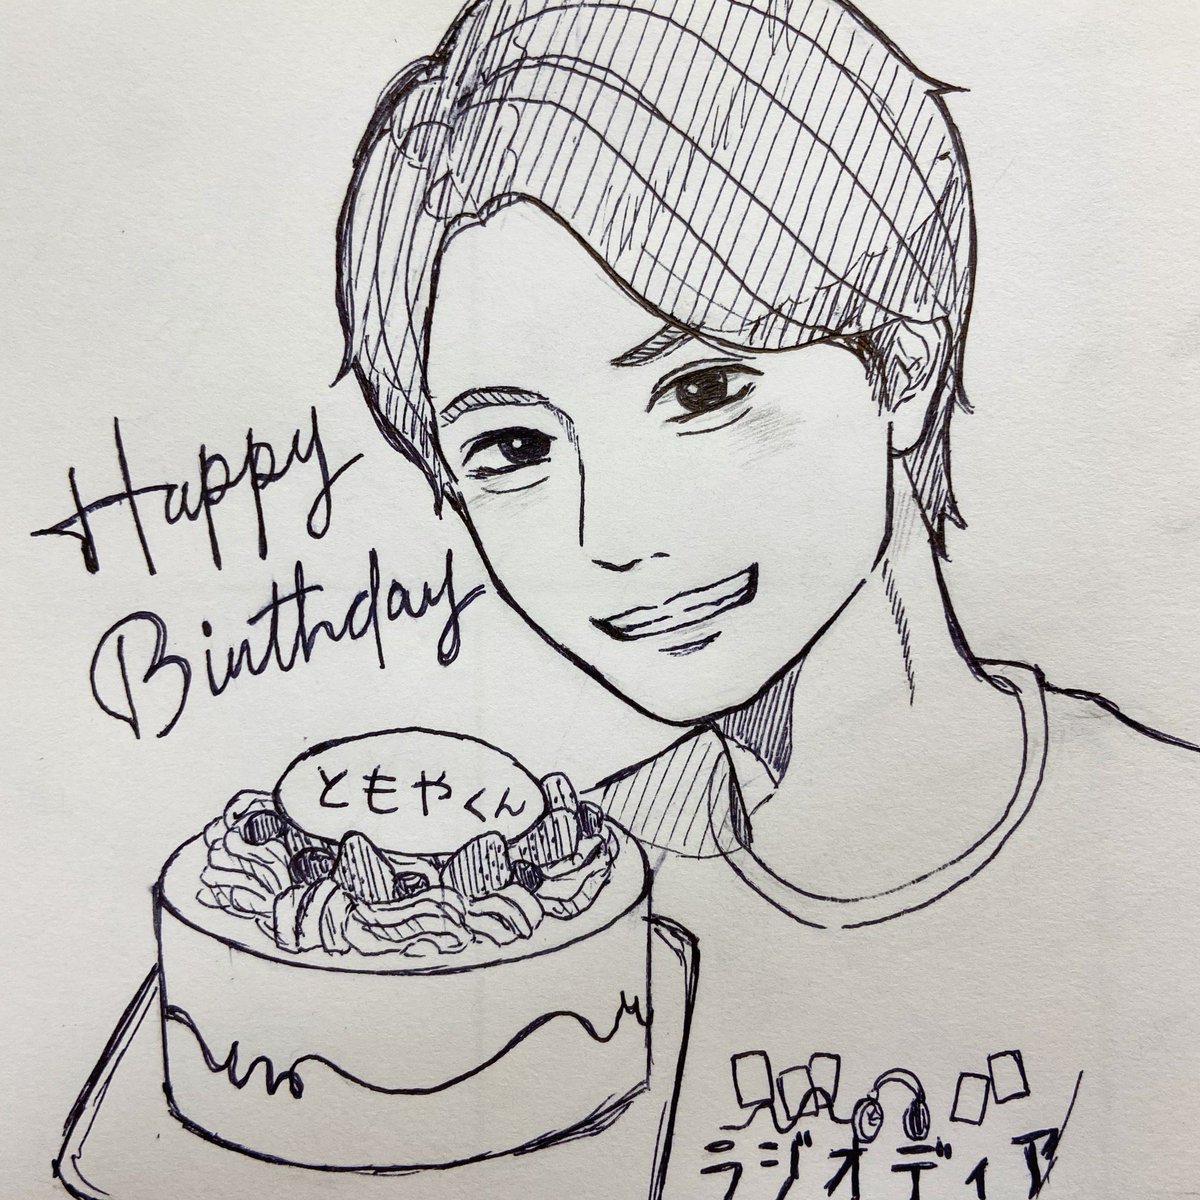 Happy
Birthday
ともやくん
ラジオディア